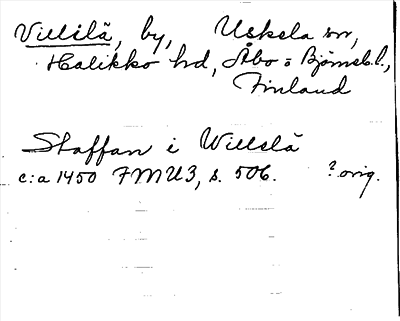 Villilä, by, Uskela sn,
Halikko hd, Åbo o Björneb. l.,
Finland
Staffan i Willelä
c:a 1450 FMU3, s. 506. ? orig.